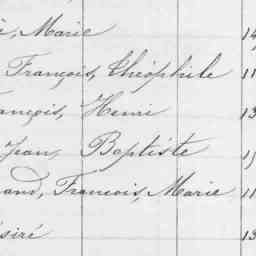 Marie 14
François, Théophile 11
ançois, Henri 13
Jean, Baptiste 15
and, François, Marie 11
siré 13